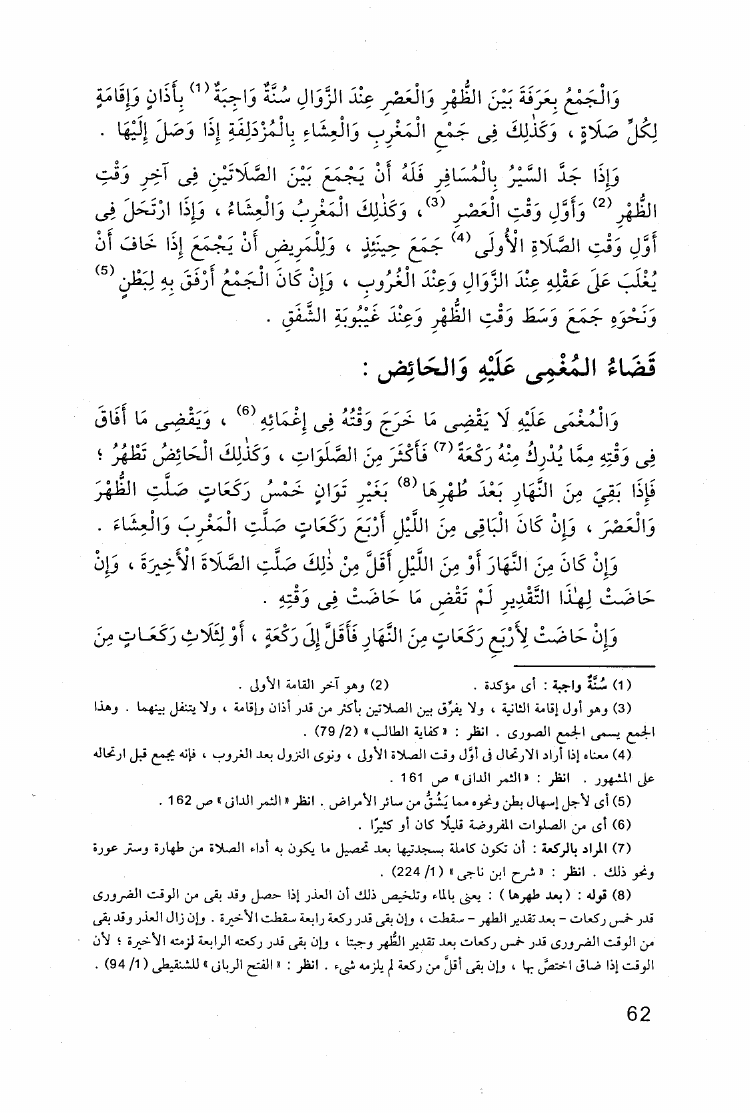 وَالْجَمْعُ بِعَرَفَةَ بَيْنَ الظُّهْرِ وَالْعَصْرِ عِنْدَ الزَّوَالِ سُنَّةٌ وَاجِبَةٌ (1) بِأَذَانٍ وَإِقَامَةٍ
لِكُلِّ صَلَاةٍ ، وَكَذٰلِكَ فِى جَمْعِ الْمَغْرِبِ وَالْعِشَاءِ بِالْمُزْدَلِفَةِ إِذَا وَصَلَ إِلَيْهَا .
وَإِذَا جَدَّ السَّيْرُ بِالْمُسَافِرِ فَلَهُ أَنْ يَجْمَعَ بَيْنَ الصَّلَاتَيْنِ فِى آخِرِ وَقْتِ
الظُّهْرِ (2) وَأَوَّلِ وَقْتِ الْعَصْرِ (3)، وَكَذٰلِكَ الْمَغْرِبُ وَالْعِشَاءُ ، وَإِذَا ارْتَحَلَ فِى
أَوَّلِ وَقْتِ الصَّلَاةِ الْأُولَى (4) جَمَعَ حِينَئِذٍ ، وَلِلْمَرِيضِ أَنْ يَجْمَعَ إِذَا خَافَ أَنْ
يُغْلَبَ عَلَى عَقْلِهِ عِنْدَ الزَّوَالِ وَعِنْدَ الْغُرُوبِ ، وَإِنْ كَانَ الْجَمْعُ أَرْفَقَ بِهِ لِبَطْنٍ (5)
وَنَحْوِهِ جَمَعَ وَسَطَ وَقْتِ الظُّهْرِ وَعِنْدَ غَيْبُوبَةِ الشَّفَقِ .
قَضَاءُ المُغْمِى عَلَيْهِ وَالحَائِض :
وَالْمُغْمَى عَلَيْهِ لَا يَقْضِى مَا خَرَجَ وَقْتُهُ فِى إِغْمَائِهِ (6) ، وَيَقْضِى مَا أَفَاقَ
فِى وَقْتِهِ مِمَّا يُدْرِكُ مِنْهُ رَكْعَةً (7) فَأَكْثَرَ مِنَ الصَّلَوَاتِ ، وَكَذٰلِكَ الْحَائِضُ تَطْهُرُ ؛
فَإِذَا بَقِيَ مِنَ النَّهَارِ بَعْدَ طُهْرِهَا (8) بِغَيْرِ تَوَانٍ خَمْسُ رَكَعَاتٍ صَلَّتِ الظُّهْرَ
وَالْعَصْرَ ، وَإِنْ كَانَ الْبَاقِى مِنَ اللَّيْلِ أَرْبَعَ رَكَعَاتٍ صَلَّتِ الْمَغْرِبَ وَالْعِشَاءَ .
وَإِنْ كَانَ مِنَ النَّهَارِ أَوْ مِنَ اللَّيْلِ أَقَلَّ مِنْ ذٰلِكَ صَلَّتِ الصَّلَاةَ الْأَخِيرَةَ ، وَإِنْ
حَاضَتْ لِهٰذَا التَّقْدِيرِ لَمْ تَقْضِ مَا حَاضَتْ فِى وَقْتِهِ .
وَإِنْ حَاضَتْ لِأَرْبَعِ رَكَعَاتٍ مِنَ النَّهَارِ فَأَقَلَّ إِلَى رَكْعَةٍ ، أَوْ لِثَلَاثِ رَكَعَاتٍ مِنَ
(1) سُنَّةٌ واجبة : أى مؤكدة . (2) وهو آخر القامة الأولى .
(3) وهو أول إقامة الثانية ، ولا يفرِّق بين الصلاتين بأكثر من قدر أذان وإقامة ، ولا يتنفل بينهما . وهذا
الجمع يسمى الجمع الصورى . انظر : « كفاية الطالب » (2/ 79) .
(4) معناه إذا أراد الارتحال فى أوَّل وقت الصلاة الأولى ، ونوى النزول بعد الغروب ، فإنه يجمع قبل ارتحاله
على المشهور . انظر : « الثمر الدانى » ص 161 .
(5) أى لأجل إسهال بطن ونحوه مما يَشُقُّ من سائر الأمراض . انظر « الثمر الدانى » ص 162 .
(6) أى من الصلوات المفروضة قليلًا كان أو كثيرًا .
(7) المراد بالركعة : أن تكون كاملة بسجدتيها بعد تحصيل ما يكون به أداء الصلاة من طهارة وستر عورة
ونحو ذلك . انظر : « شرح ابن ناجى » (1/ 224) .
(8) قوله : ( بعد طهرها ) : يعنى بالماء وتلخيص ذلك أن العذر إذا حصل وقد بقى من الوقت الضرورى
قدر خمس ركعات - بعد تقدير الطهر - سقطت ، وإن بقى قدر ركعة رابعة سقطت الأخيرة . وإن زال العذر وقد بقى
من الوقت الضرورى قدر خمس ركعات بعد تقدير الطُّهر وجبتا ، وإن بقى قدر ركعته الرابعة لزمته الأخيرة ؛ لأن
الوقت إذا ضاق اختصَّ بها ، وإن بقى أقلّ من ركعة لم يلزمه شىء . انظر : « الفتح الربانى » للشنقيطى (1/ 94) .
62